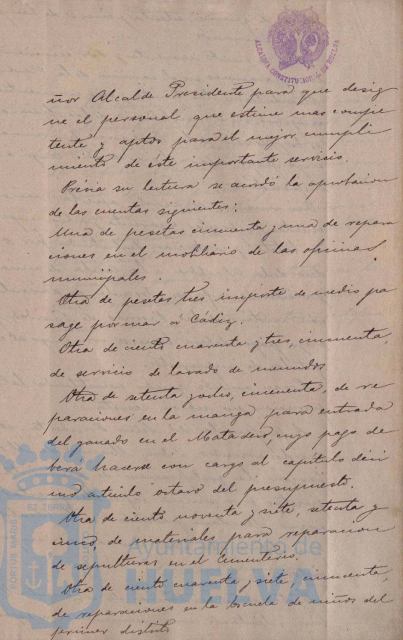 ALCALDIA CONSTITUCIONAL DE HUELVA
ñor Alcalde Presidente para que desig
ne el personal que estime mas compe
tente y apto para el mejor cumpli
miento de este importante servicio.
Prévia su lectura se acordó la aprobacion
de las cuentas siguientes:
Una de pesetas cincuenta y una de repara
ciones en el mobiliario de las oficinas
municipales.
Otra de pesetas tres importe de medio pa
sage por mar á Cádiz.
Otra de ciento cuarenta y tres, cincuenta,
de servicio de lavado de menudos
Otra de setenta y ocho, cincuenta, de re
paraciones en la manga para entrada
del ganado en el Matadero, cuyo pago de
berá hacerse con cargo al capítulo déci
mo artículo octavo del presupuesto.
Otra de ciento noventa y siete, setenta y
cinco de materiales para reparacion
de sepulturas en el Cementerio.
Otra de ciento cuarenta y siete, cincuenta,
de reparaciones en la Escuela de niños del
primer distrito
Ayuntamiento de
HUELVA